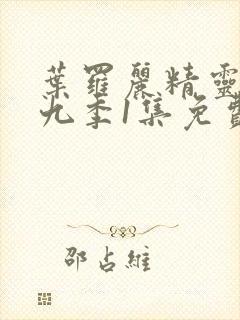 葉羅麗精靈
九季1集免費
邵占維